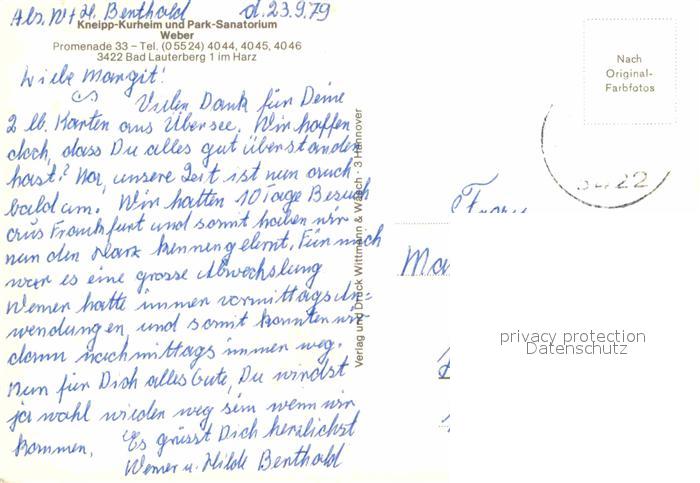 Abs. W + H. Benthold d. 23.9.79
Kneipp-Kurheim und Park-Sanatorium
Weber
Promenade 33 – Tel. (0 55 24) 40 44, 40 45, 40 46
3422 Bad Lauterberg 1 im Harz
Nach
Original-
Farbfotos
3422
Liebe Margit!
Vielen Dank für Deine
2 lb. Karten aus Übersee. Wir hoffen
doch, dass Du alles gut überstanden
hast? Na, unsere Zeit ist nun auch
bald um. Wir hatten 10 Tage Besuch
aus Frankfurt und somit haben wir
nun den Harz kennengelernt. Für mich
war es eine grosse Abwechslung
Werner hatte immer vormittags An=
wendungen und somit konnten wir
dann nachmittags immer weg.
Nun für Dich alles Gute, Du wirdst
ja wohl wieder weg sein wenn wir
kommen. Es grüsst Dich herzlichst
Werner u. Hilde Benthold
Verlag und Druck Wittmann & Wäsch · 3 Hannover
Frau
Ma
privacy protection
Datenschutz